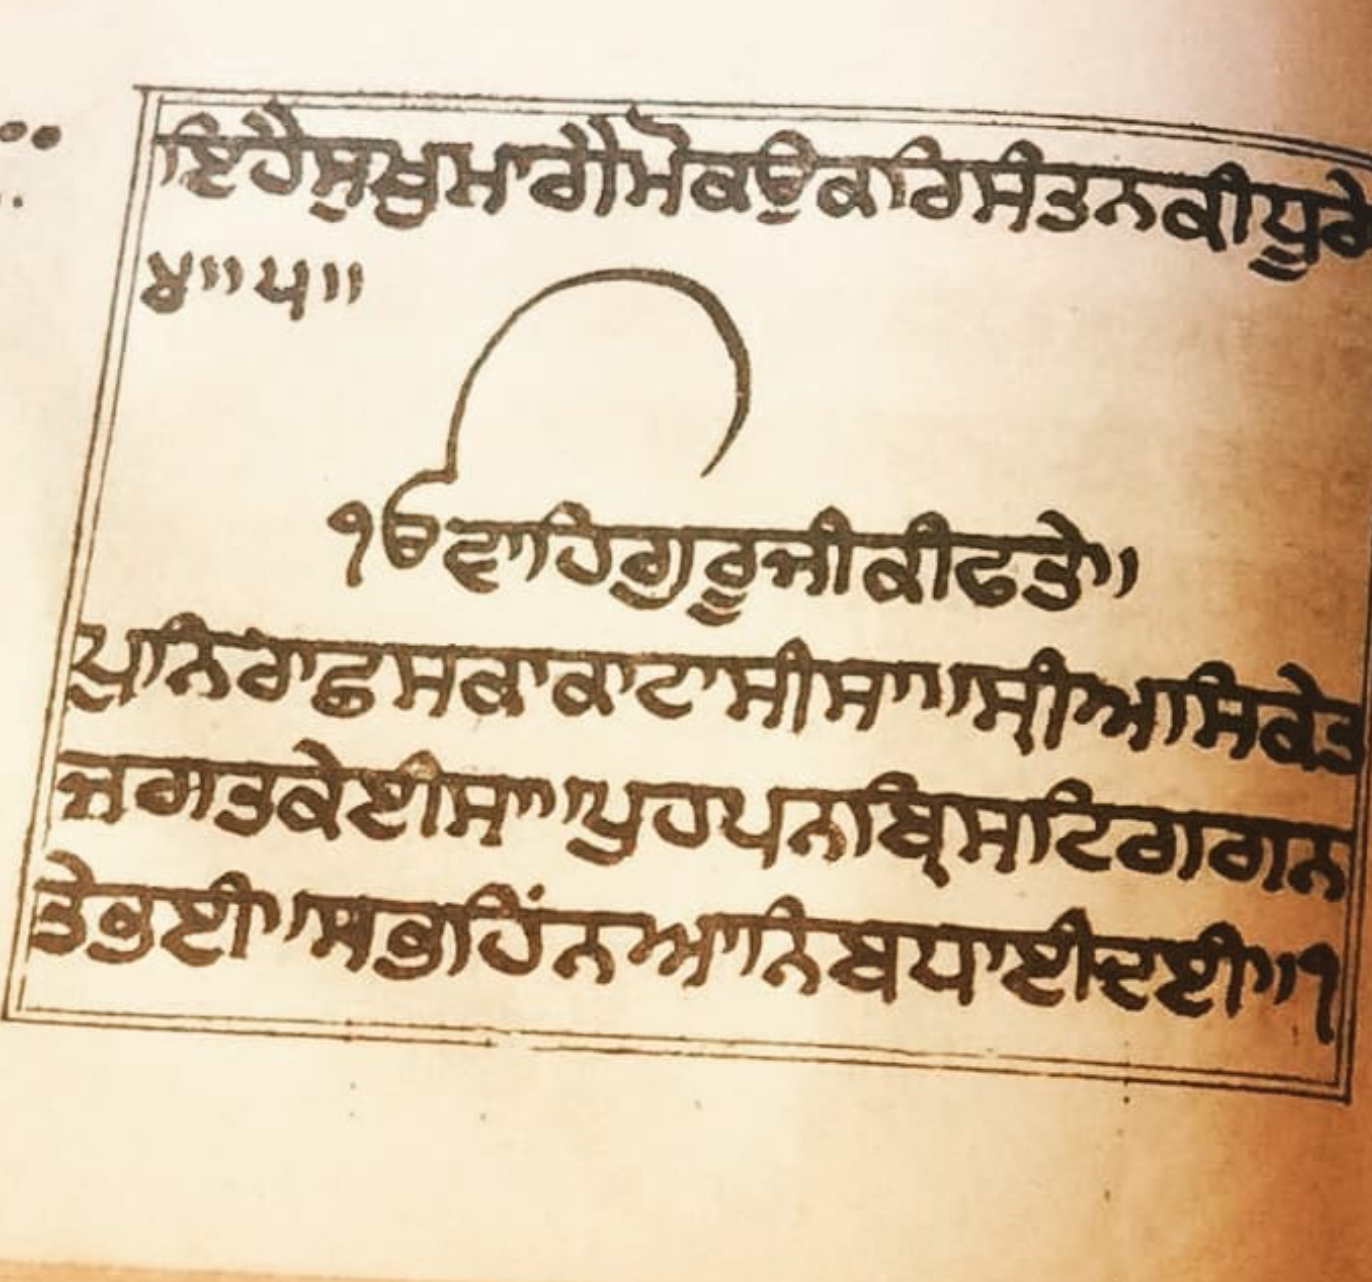 ਇਹੈਸੁਖੁਮਾਗੈਮੋਕਉਕਰਿਸੰਤਨਕੀਧੂਰੇ
੪॥੫॥
ੴਵਾਹਿਗੁਰੂਜੀਕੀਫਤੇ॥
ਪੁਨਿਰਾਛਸਕਾਕਾਟਾਸੀਸਾ॥ਸ੍ਰੀਅਸਿਕੇਤ
ਜਗਤਕੇਈਸਾ॥ਪੁਹਪਨਬ੍ਰਿਸਟਿਗਗਨ
ਤੇਭਈ॥ਸਭਹਿੰਨਆਨਿਬਧਾਈਦਈ॥੧